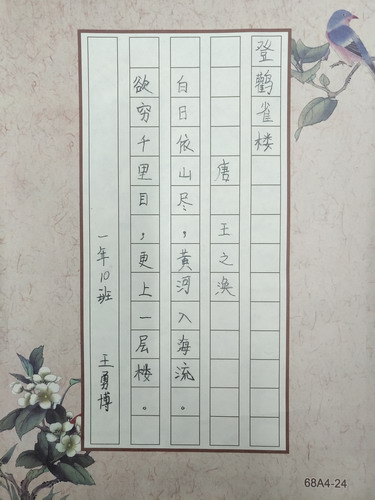 登鹳雀楼
唐 王之涣
白日依山尽，黄河入海流。
欲穷千里目，更上一层楼。
一年10班 王勇博
68A4-24